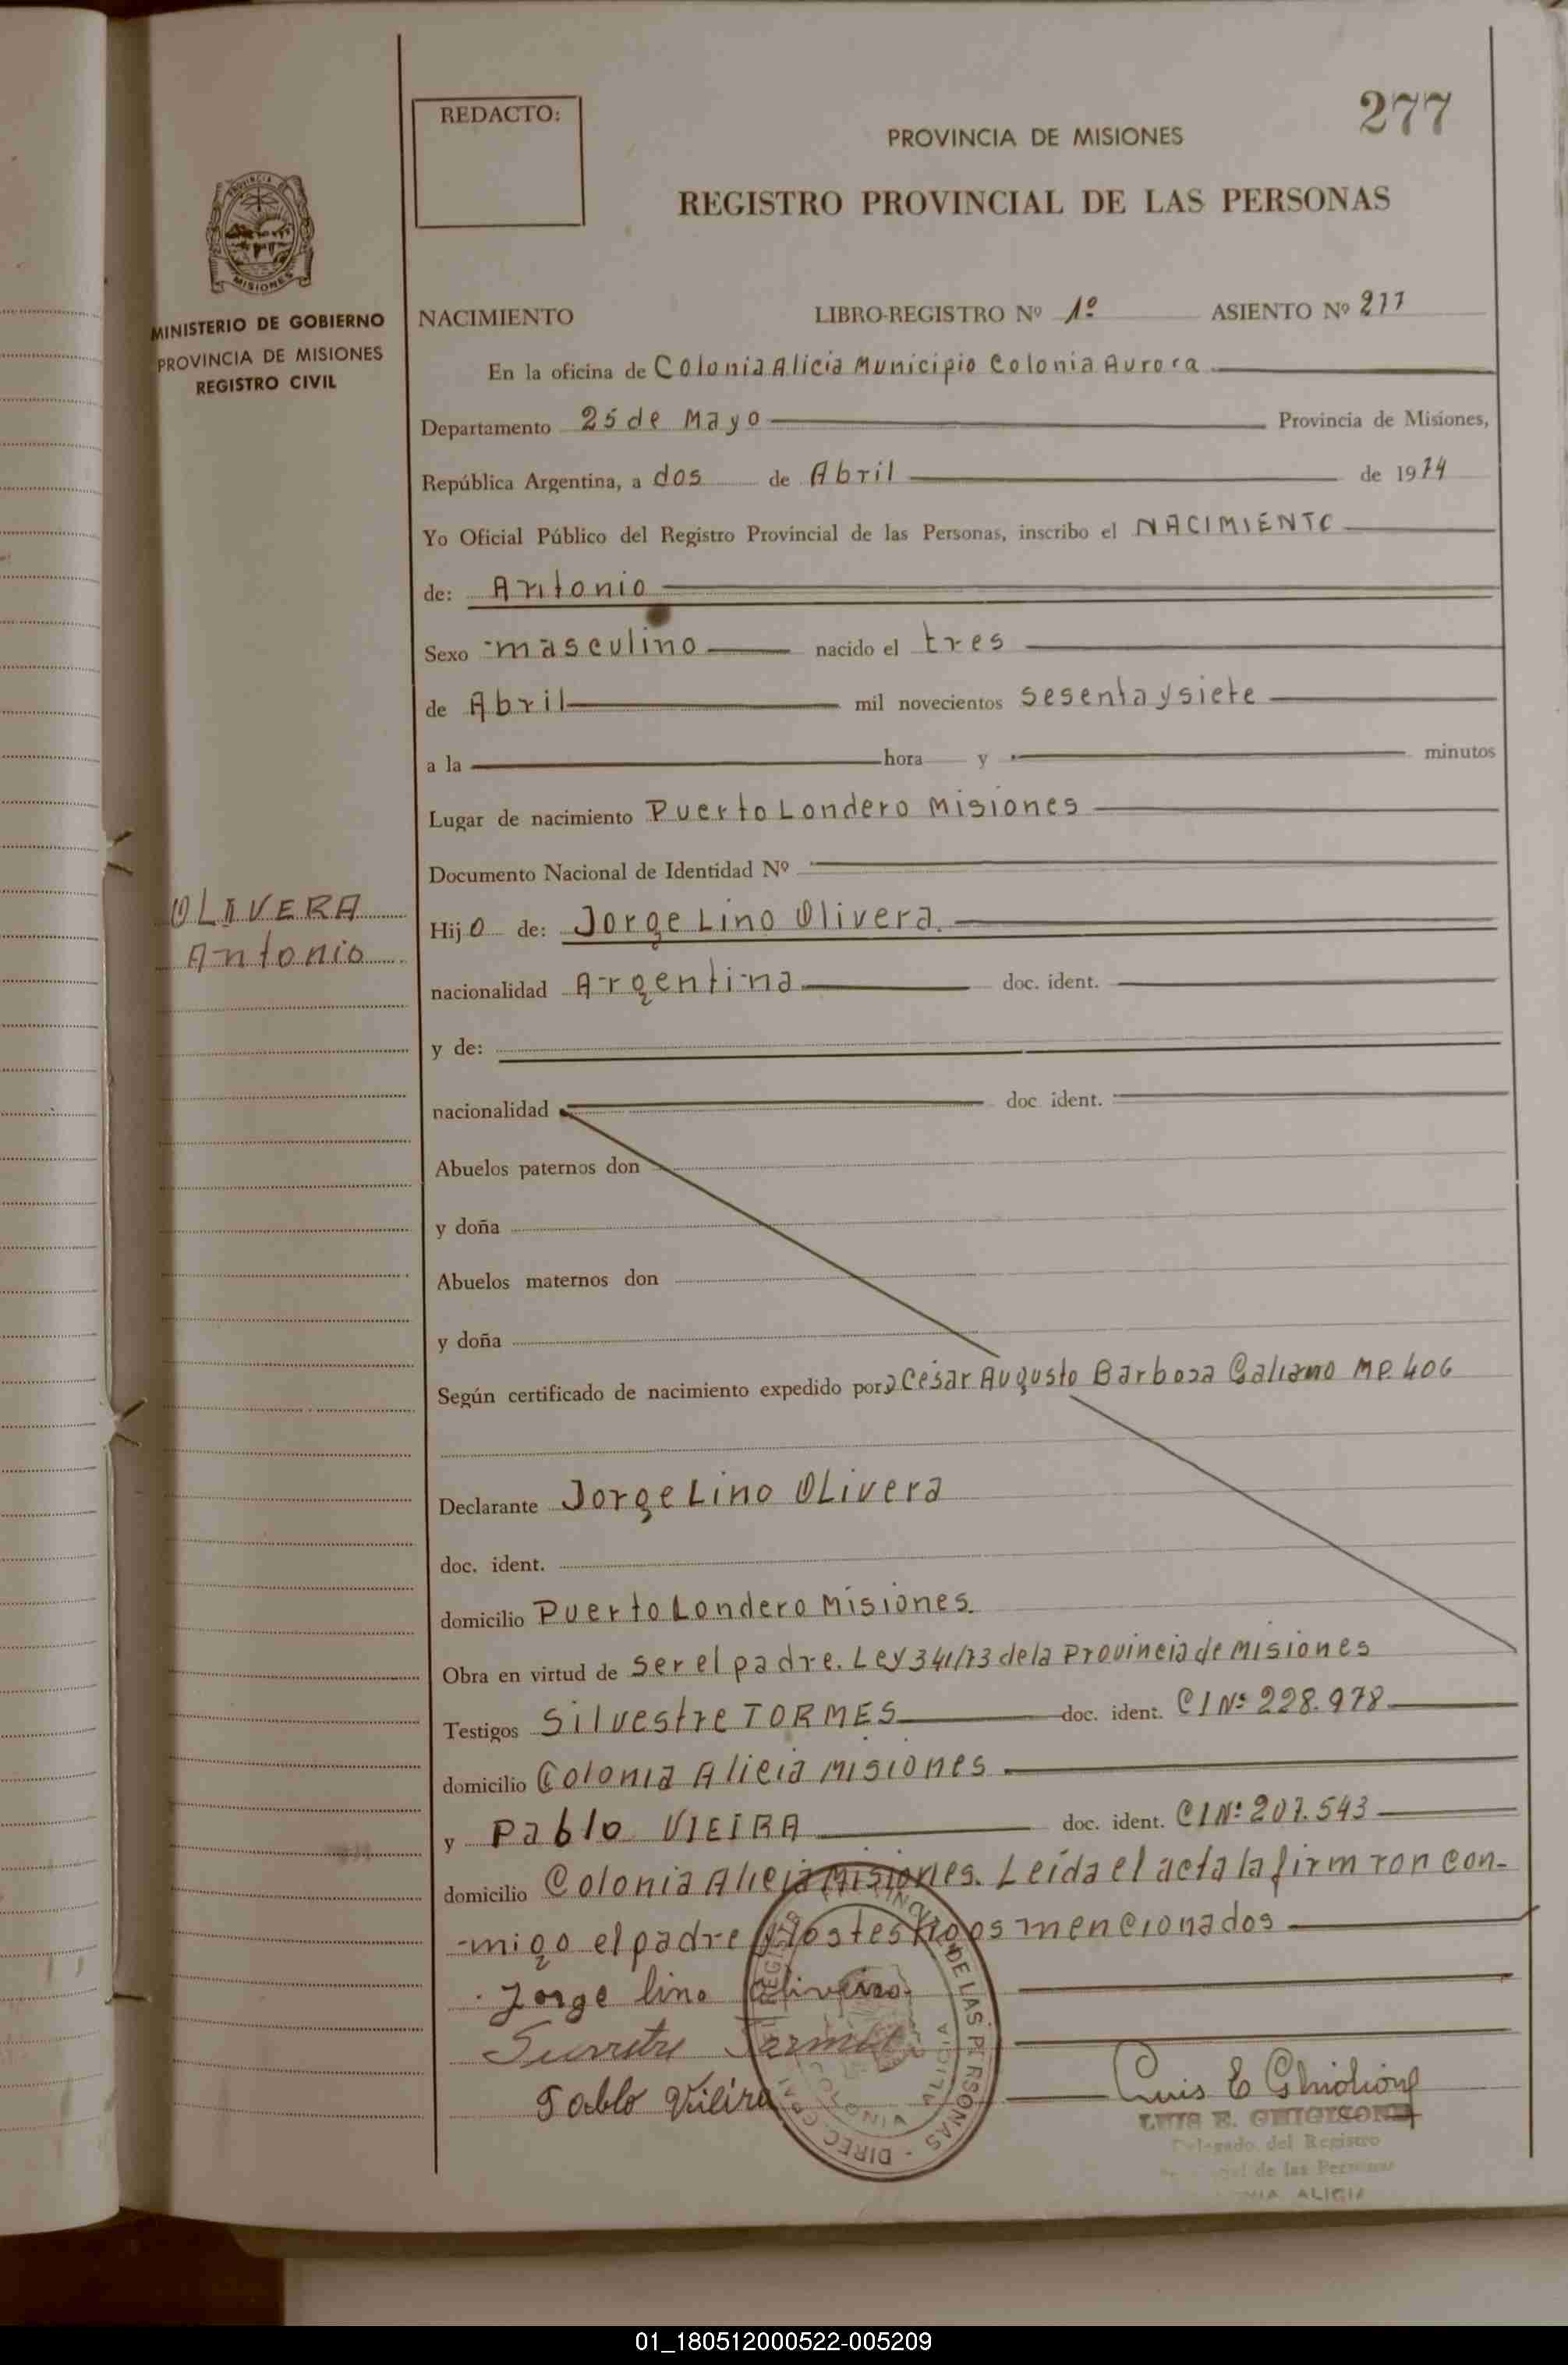 277
REDACTO:
PROVINCIA DE MISIONES
REGISTRO PROVINCIAL DE LAS PERSONAS
PROVINCIA DE
MISIONES
MINISTERIO DE GOBIERNO
PROVINCIA DE MISIONES
REGISTRO CIVIL
NACIMIENTO LIBRO-REGISTRO Nº 1º ASIENTO Nº 277
En la oficina de Colonia Alicia Municipio Colonia Aurora
Departamento 25 de Mayo Provincia de Misiones,
República Argentina, a dos de Abril de 1974
Yo Oficial Público del Registro Provincial de las Personas, inscribo el NACIMIENTO
de: Antonio
Sexo masculino nacido el tres
de Abril mil novecientos sesenta y siete
a la hora y minutos
Lugar de nacimiento Puerto Londero Misiones
Documento Nacional de Identidad Nº
OLIVERA
Antonio
Hijo de: Jorge Lino Olivera.
nacionalidad Argentina doc. ident.
y de:
nacionalidad doc. ident.
Abuelos paternos don
y doña
Abuelos maternos don
y doña
Según certificado de nacimiento expedido por Cesar Augusto Barboza Galiano MP. 406
Declarante Jorge Lino Olivera
doc. ident.
domicilio Puerto Londero Misiones.
Obra en virtud de ser el padre. Ley 341/73 de la Provincia de Misiones
Testigos Silvestre TORMES doc. ident. CI Nº 228.978
domicilio Colonia Alicia Misiones
y Pablo VIEIRA doc. ident. CI Nº 207.543
domicilio Colonia Alicia Misiones. Leída el acta la firm ron con-
-migo el padre y los testigos mencionados
Jorge lino Oliveira
Pablo Vieira
DE LAS PERSONAS - DIREC. GRAL REGISTRO
COLONIA ALICIA
Luis E Ghigione
LUIS E. GHIGIONE
Delegado del Registro
de las Personas
ALICIA
01_180512000522-005209